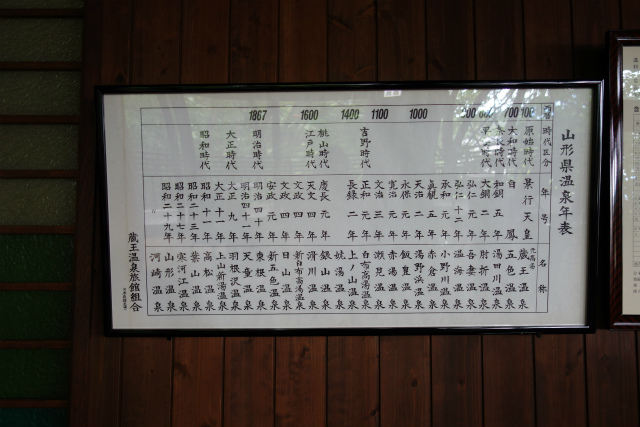 山形県温泉年表
時代区分
年号
名称
100
700
1000
1100
1400
1600
1867
原始時代
大和時代
吉野時代
桃山時代
江戸時代
明治時代
大正時代
昭和時代
景行天皇 蔵王温泉
白鳳 五色温泉
和銅五年 湯田川温泉
大銅二年 肘折温泉
弘仁元年 吾妻温泉
弘仁十二年 温海温泉
承和元年 小野川温泉
貞観五年 赤倉温泉
天治二年 湯野浜温泉
永保元年 飯豊温泉
寛治元年 赤湯温泉
文治三年 瀬見温泉
正和元年 白布高湯温泉
長禄二年 上ノ山温泉
姥湯温泉
慶長元年 銀山温泉
天文四年 滑川温泉
文政四年 新白布高湯温泉
文政四年 日山温泉
安政元年 新五色温泉
明治四十年 東根温泉
明治四十一年 天童温泉
大正九年 羽根沢温泉
大正十一年 上山新湯温泉
昭和十一年 高松温泉
昭和二十三年 葉山温泉
昭和二十七年 寒河江温泉
昭和二十九年 山形温泉
河崎温泉
蔵王温泉旅館組合